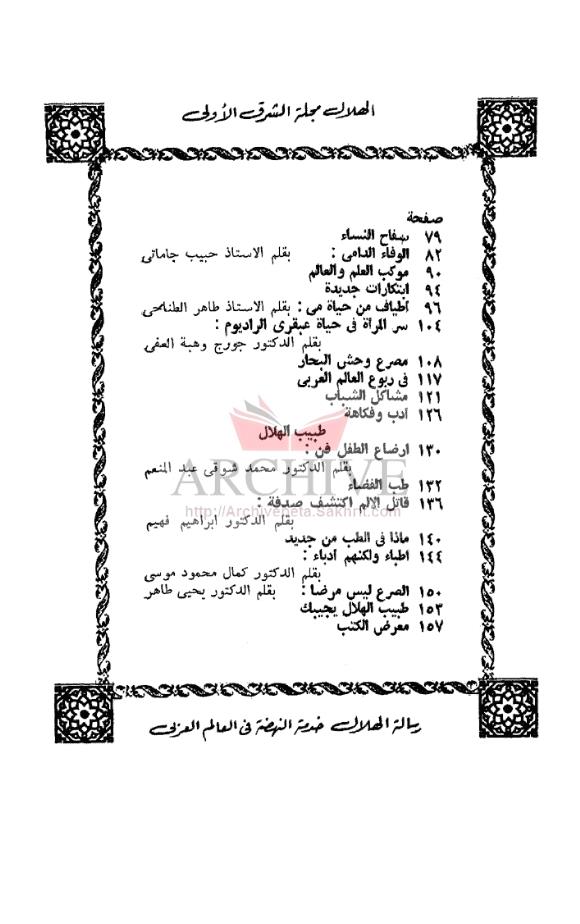 الهلال مجلة الشرق الأولى
صفحة
٧٩ سفاح النساء
٨٢ الوفاء الدامى : بقلم الاستاذ حبيب جاماتى
٩٠ موكب العلم والعالم
٩٤ ابتكارات جديدة
٩٦ أطياف من حياة مى : بقلم الاستاذ طاهر الطناحى
١٠٤ سر المرأة فى حياة عبقرى الراديوم :
بقلم الدكتور جورج وهبة العفى
١٠٨ مصرع وحش البحار
١١٧ فى ربوع العالم العربى
١٢١ مشاكل الشباب
١٢٦ أدب وفكاهة
طبيب الهلال
١٣٠ ارضاع الطفل فن :
بقلم الدكتور محمد شوقى عبد المنعم
١٣٢ طب الفضاء
ARCHIVE
١٣٦ قاتل الالم اكتشف صدفة :
http://Archivebeta.Sakhrit.com
بقلم الدكتور ابراهيم فهيم
١٤٠ ماذا فى الطب من جديد
١٤٤ اطباء ولكنهم ادباء :
بقلم الدكتور كمال محمود موسى
١٥٠ الصرع ليس مرضا : بقلم الدكتور يحيى طاهر
١٥٣ طبيب الهلال يجيبك
١٥٧ معرض الكتب
رسالة الهلال خدمة النهضة فى العالم العربى